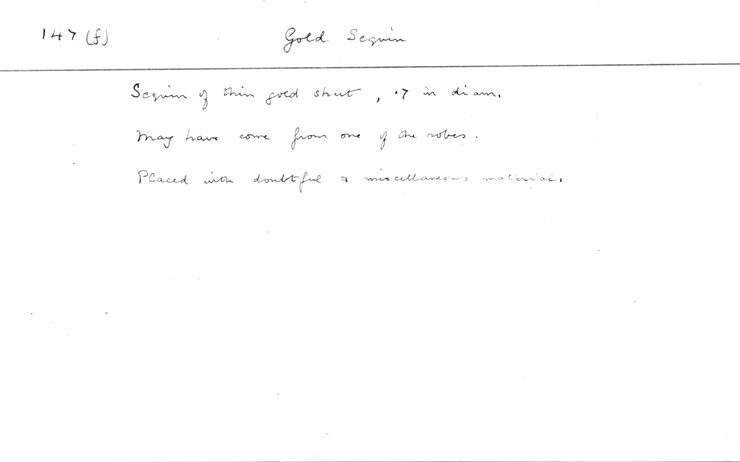 147 (f) Gold Sequin
Sequin of thin gold sheet, .7 in diam.
May have come from one of the robes.
Placed with doubtful & miscellaneous material.